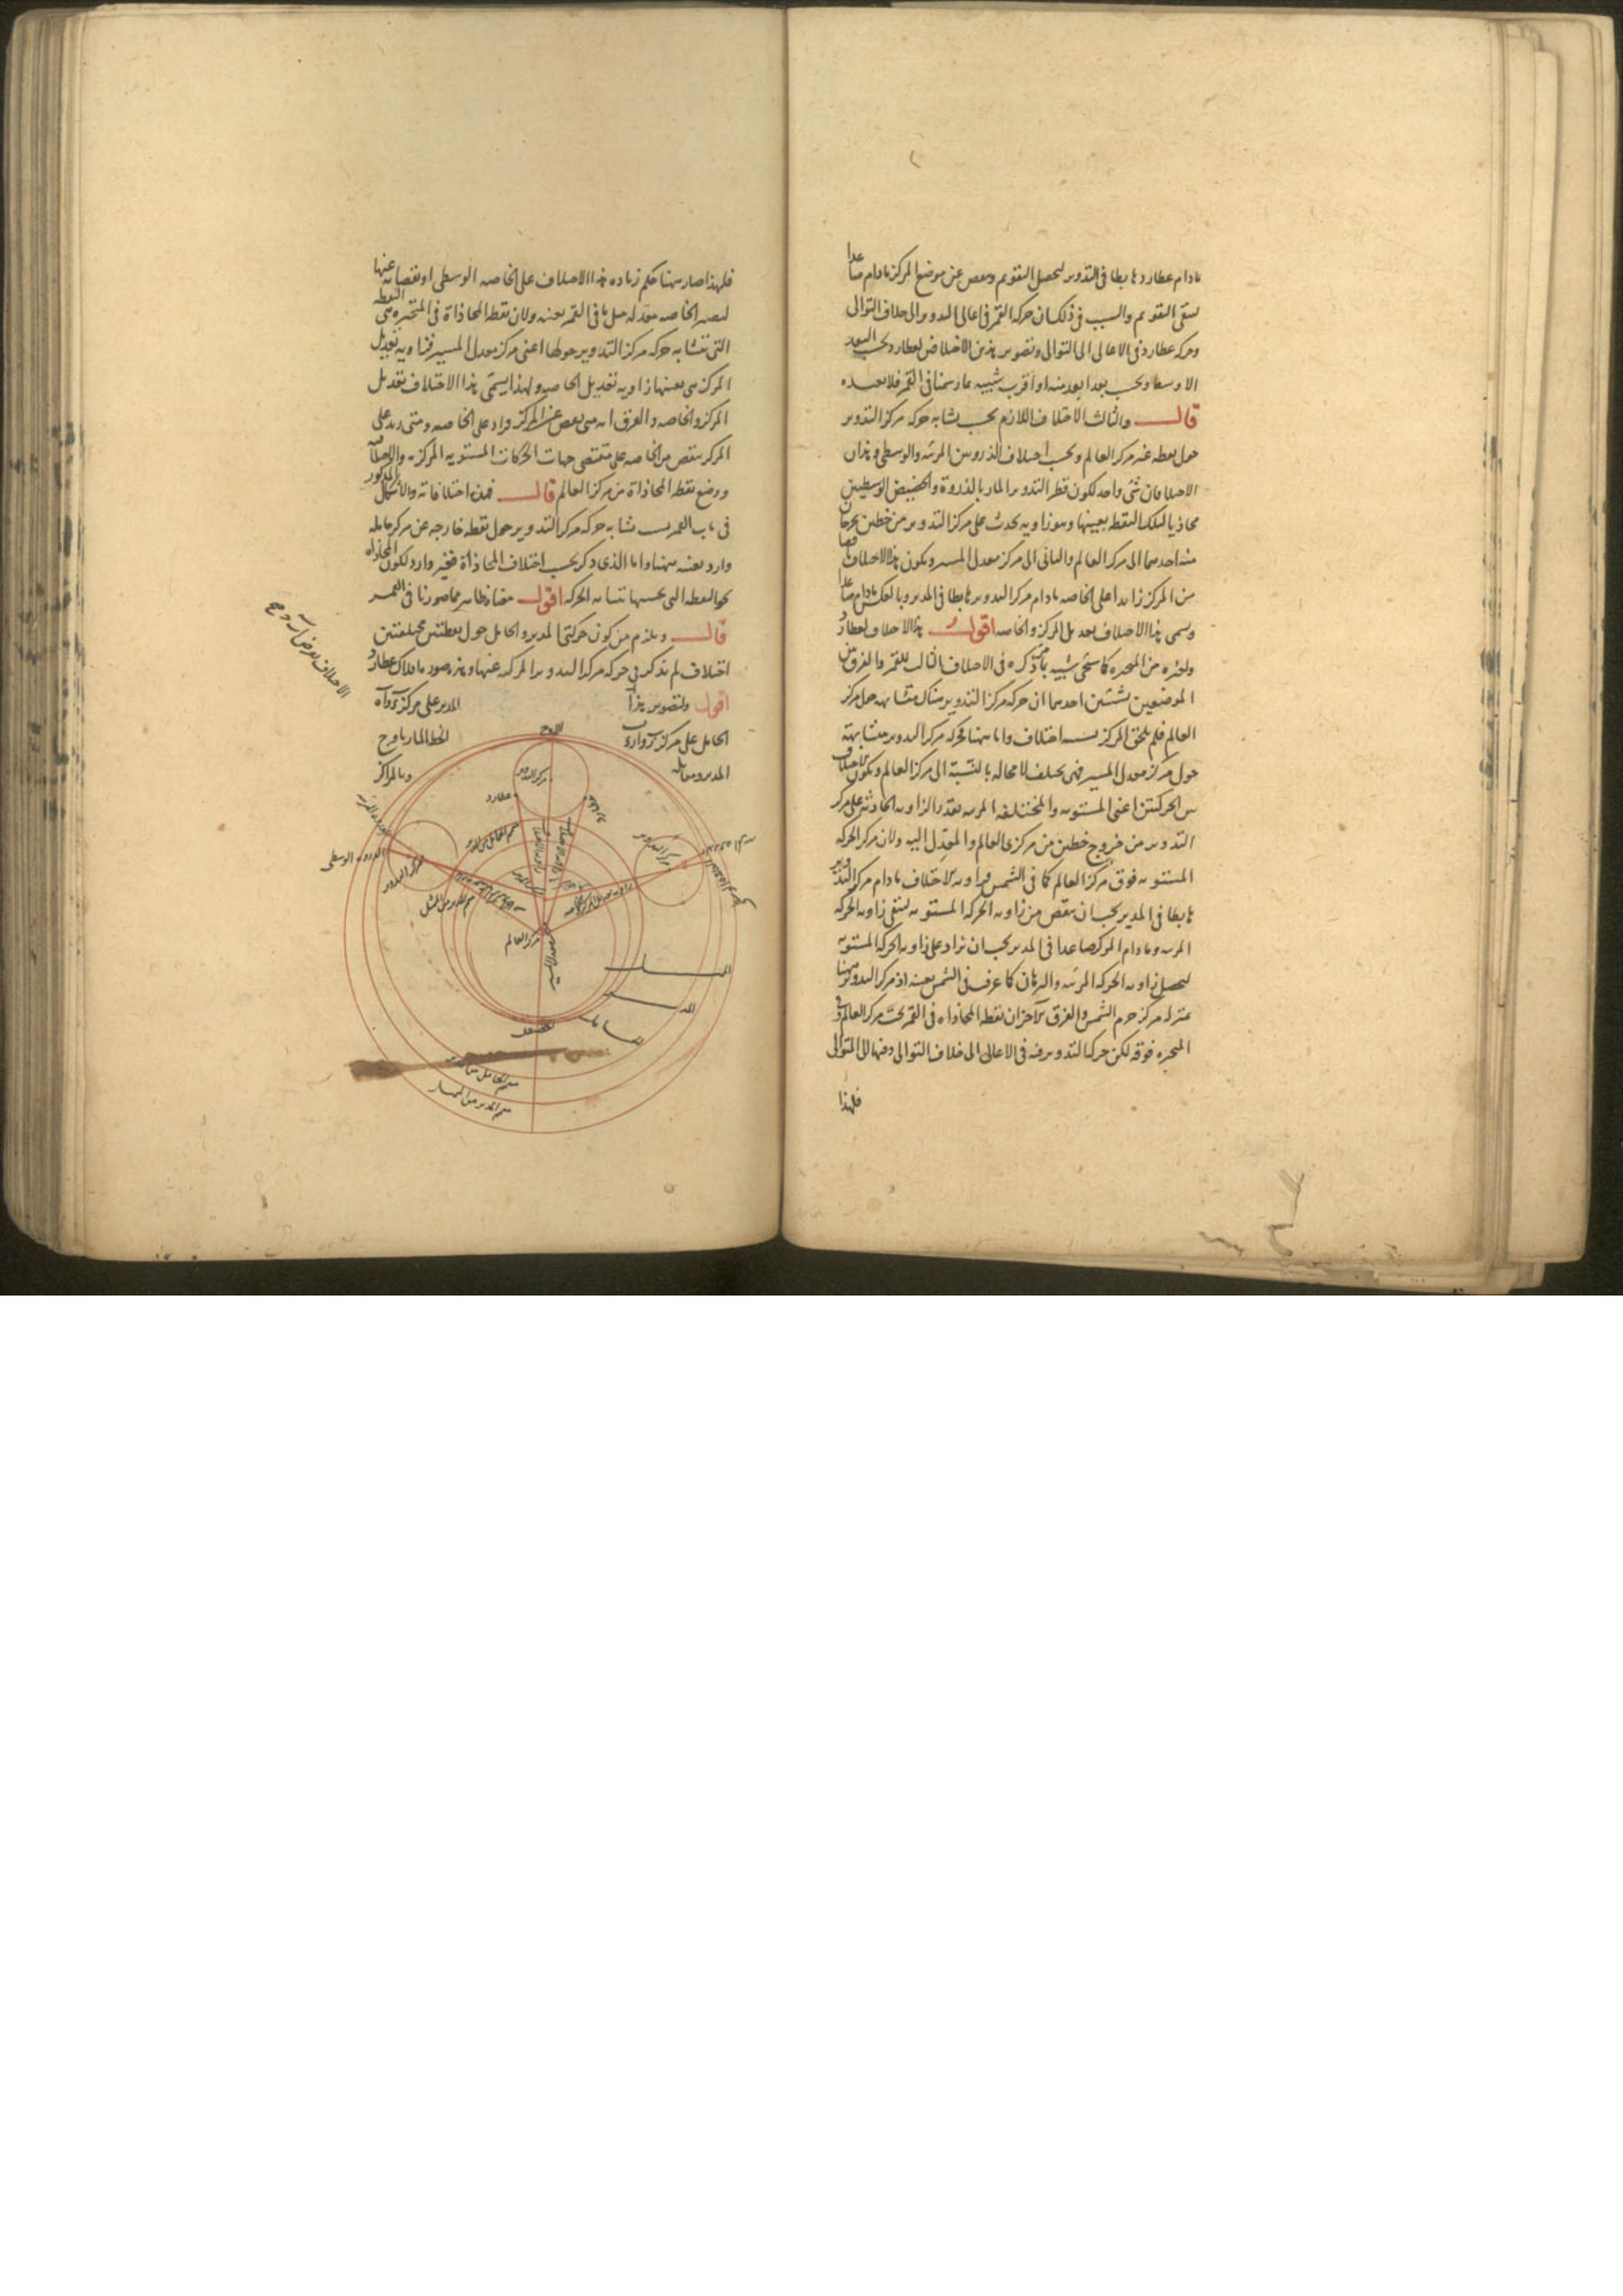 مادام عطارد هابطا فى التدوير ليحصل التقويم وينقص عن موضع المركز مادام صاعدا
ليبقى التقويم والسبب فى ذلك ان حركة القمر فى اعالى التدوير الى خلاف التوالى
وحركة عطارد فى الاعالى الى التوالى وتصوير هذين الاختلافين لعطارد بحسب البعد
الاوسط وبحسب بعد ابعد منه او اقرب شبيه بما رسمنا فى القمر فلا نعيده
قال والثالث الاختلاف اللازم بحسب تشابه حركة مركز التدوير
حول نقطة غير مركز العالم وبحسب اختلاف الذروتين المرئية والوسطى وهذان
الاختلافان شىء واحد لكون قطر التدوير المار بالذروة والحضيض الوسطيين
محاذيا لتلك النقطة بعينها وهو زاوية تحدث على مركز التدوير من خطين يخرجان
منه احدهما الى مركز العالم والثانى الى مركز معدل المسير ويكون هذا الاختلاف
من المركز زايدا على الخاصة مادام مركز التدوير هابطا فى المدير وبالعكس مادام صاعدا
ويسمى هذا الاختلاف تعديل المركز والخاصة اقول هذا الاختلاف لعطارد
ولغيره من المتحيرة كما سيجىء شبيه بما ذكره فى الاختلاف الثالث للقمر والفرق بين
الموضعين بشيئين احدهما ان حركة مركز التدوير هناك متشابهة حول مركز
العالم فلم يلحق المركز بسببه اختلاف واما ههنا فحركة مركز التدوير متشابهة
حول مركز معدل المسير فهى تختلف لا محالة بالنسبة الى مركز العالم ويكون الاختلاف
بين الحركتين اعنى المستوية والمختلفة المرئية بقدر الزاوية الحادثة على مركز
التدوير من خروج خطين من مركزى العالم والمعدل اليه ولان مركز الحركة
المستوية فوق مركز العالم كما فى الشمس فزاوية الاختلاف مادام مركز التدوير
هابطا فى المدير يجب ان ينقص من زاوية الحركة المستوية لتبقى زاوية الحركة
المرئية ومادام المركز صاعدا فى المدير يجب ان تزاد على زاوية الحركة المستوية
ليحصل زاوية الحركة المرئية والبرهان كما عرف فى الشمس بعينه اذ مركز التدوير ههنا
بمنزلة مركز جرم الشمس والفرق الآخر ان نقطة المحاذاة فى القمر تحت مركز العالم وفى
المتحيرة فوقه لكن حركة التدوير فيه فى الاعالى الى خلاف التوالى وفيها الى التوالى
فلهذا
فلهذا صار ههنا حكم زيادة هذا الاختلاف على الخاصة الوسطى او نقصانه عنها
لتصير الخاصة معدلة مثل ما فى القمر بعينه ولان نقطة المحاذاة فى المتحيرة هى النقطة
التى تتشابه حركة مركز التدوير حولها اعنى مركز معدل المسير فزاوية تعديل
المركز هى بعينها زاوية تعديل الخاصة ولهذا يسمى هذا الاختلاف تعديل
المركز والخاصة والفرق انه متى نقص عن المركز زاد على الخاصة ومتى زيد على
المركز ينقص من الخاصة على مقتضى جهات الحركات المستوية المركزية والاختلاف
ووضع نقطة المحاذاة من مركز العالم قال فهذه اختلافاته والاشكال المذكور
فى باب القمر بسبب تشابه حركة مركز التدوير حول نقطة خارجة عن مركز حامله
وارد بعينه ههنا واما الذى ذكر بحسب اختلاف المحاذاة فغير وارد لكون المحاذاة
نحو النقطة التى بحسبها تتشابه الحركة اقول معناه ظاهر مما صورنا فى القمر
قال ويلزم من كون حركتى المدير والحامل حول نقطتين مختلفتين
اختلاف لم يذكر فى حركة مركز التدوير المركبة عنهما وهذه صورة افلاك عطارد
اقول ولتصوير هذا
المدير على مركز
الحامل على مركز
الخط المار باوج
المدير
وبالمراكز
الاوج
مركز التدوير
عطارد
مركز التدوير
الذروة الوسطى
مركز التدوير
متمم الحامل من المدير
متمم المدير من الممثل
مركز العالم
الحضيض
متمم الحامل من المدير
متمم المدير من الممثل